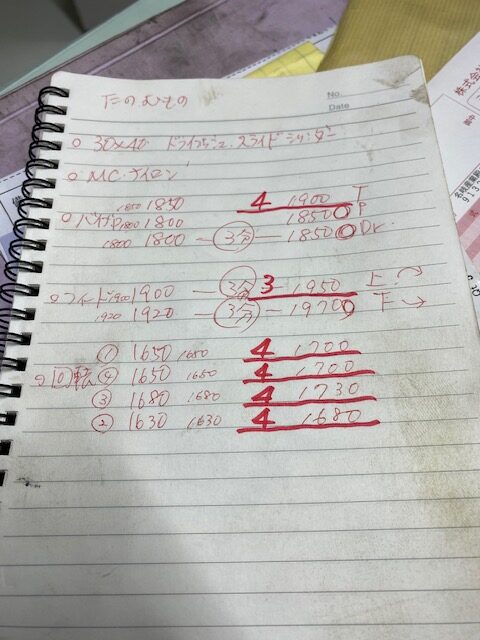 No.
Date
下のひもの
○ 30×40 ドライアッシュ.スライドシリンダー
○ MC.ナイロン
1850 1850 4 1900 T
○ バイブP 1800 1800 1850 P
1800 1800 — 3分 — 1850 Dr.
○ フィード 1900 1900 — 3分 3 — 1950 上
1920 1920 — 3分 — 1970 下 →
① 1650 1650 4 1700
○ 回転 ④ 1650 1650 4 1700
③ 1680 1680 4 1730
② 1630 1630 4 1680
株式会社
御中
913